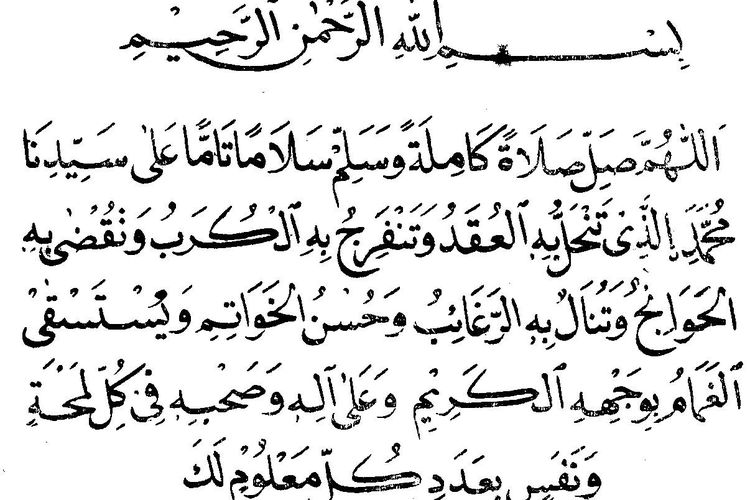 بِسْمِ اللهِ الرَّحْمٰنِ الرَّحِيْمِ
اَللّٰهُمَّ صَلِّ صَلَاةً كَامِلَةً وَسَلِّمْ سَلَامًا تَامًّا عَلٰى سَيِّدِنَا
مُحَمَّدٍ الَّذِىْ تَنْحَلُّ بِهِ الْعُقَدُ وَتَنْفَرِجُ بِهِ الْكُرَبُ وَتُقْضٰى بِهِ
الْحَوَائِجُ وَتُنَالُ بِهِ الرَّغَائِبُ وَحُسْنُ الْخَوَاتِمِ وَيُسْتَسْقٰى
الْغَمَامُ بِوَجْهِهِ الْكَرِيْمِ وَعَلٰى آلِهِ وَصَحْبِهِ فِىْ كُلِّ لَمْحَةٍ
وَنَفَسٍ بِعَدَدِ كُلِّ مَعْلُوْمٍ لَكَ